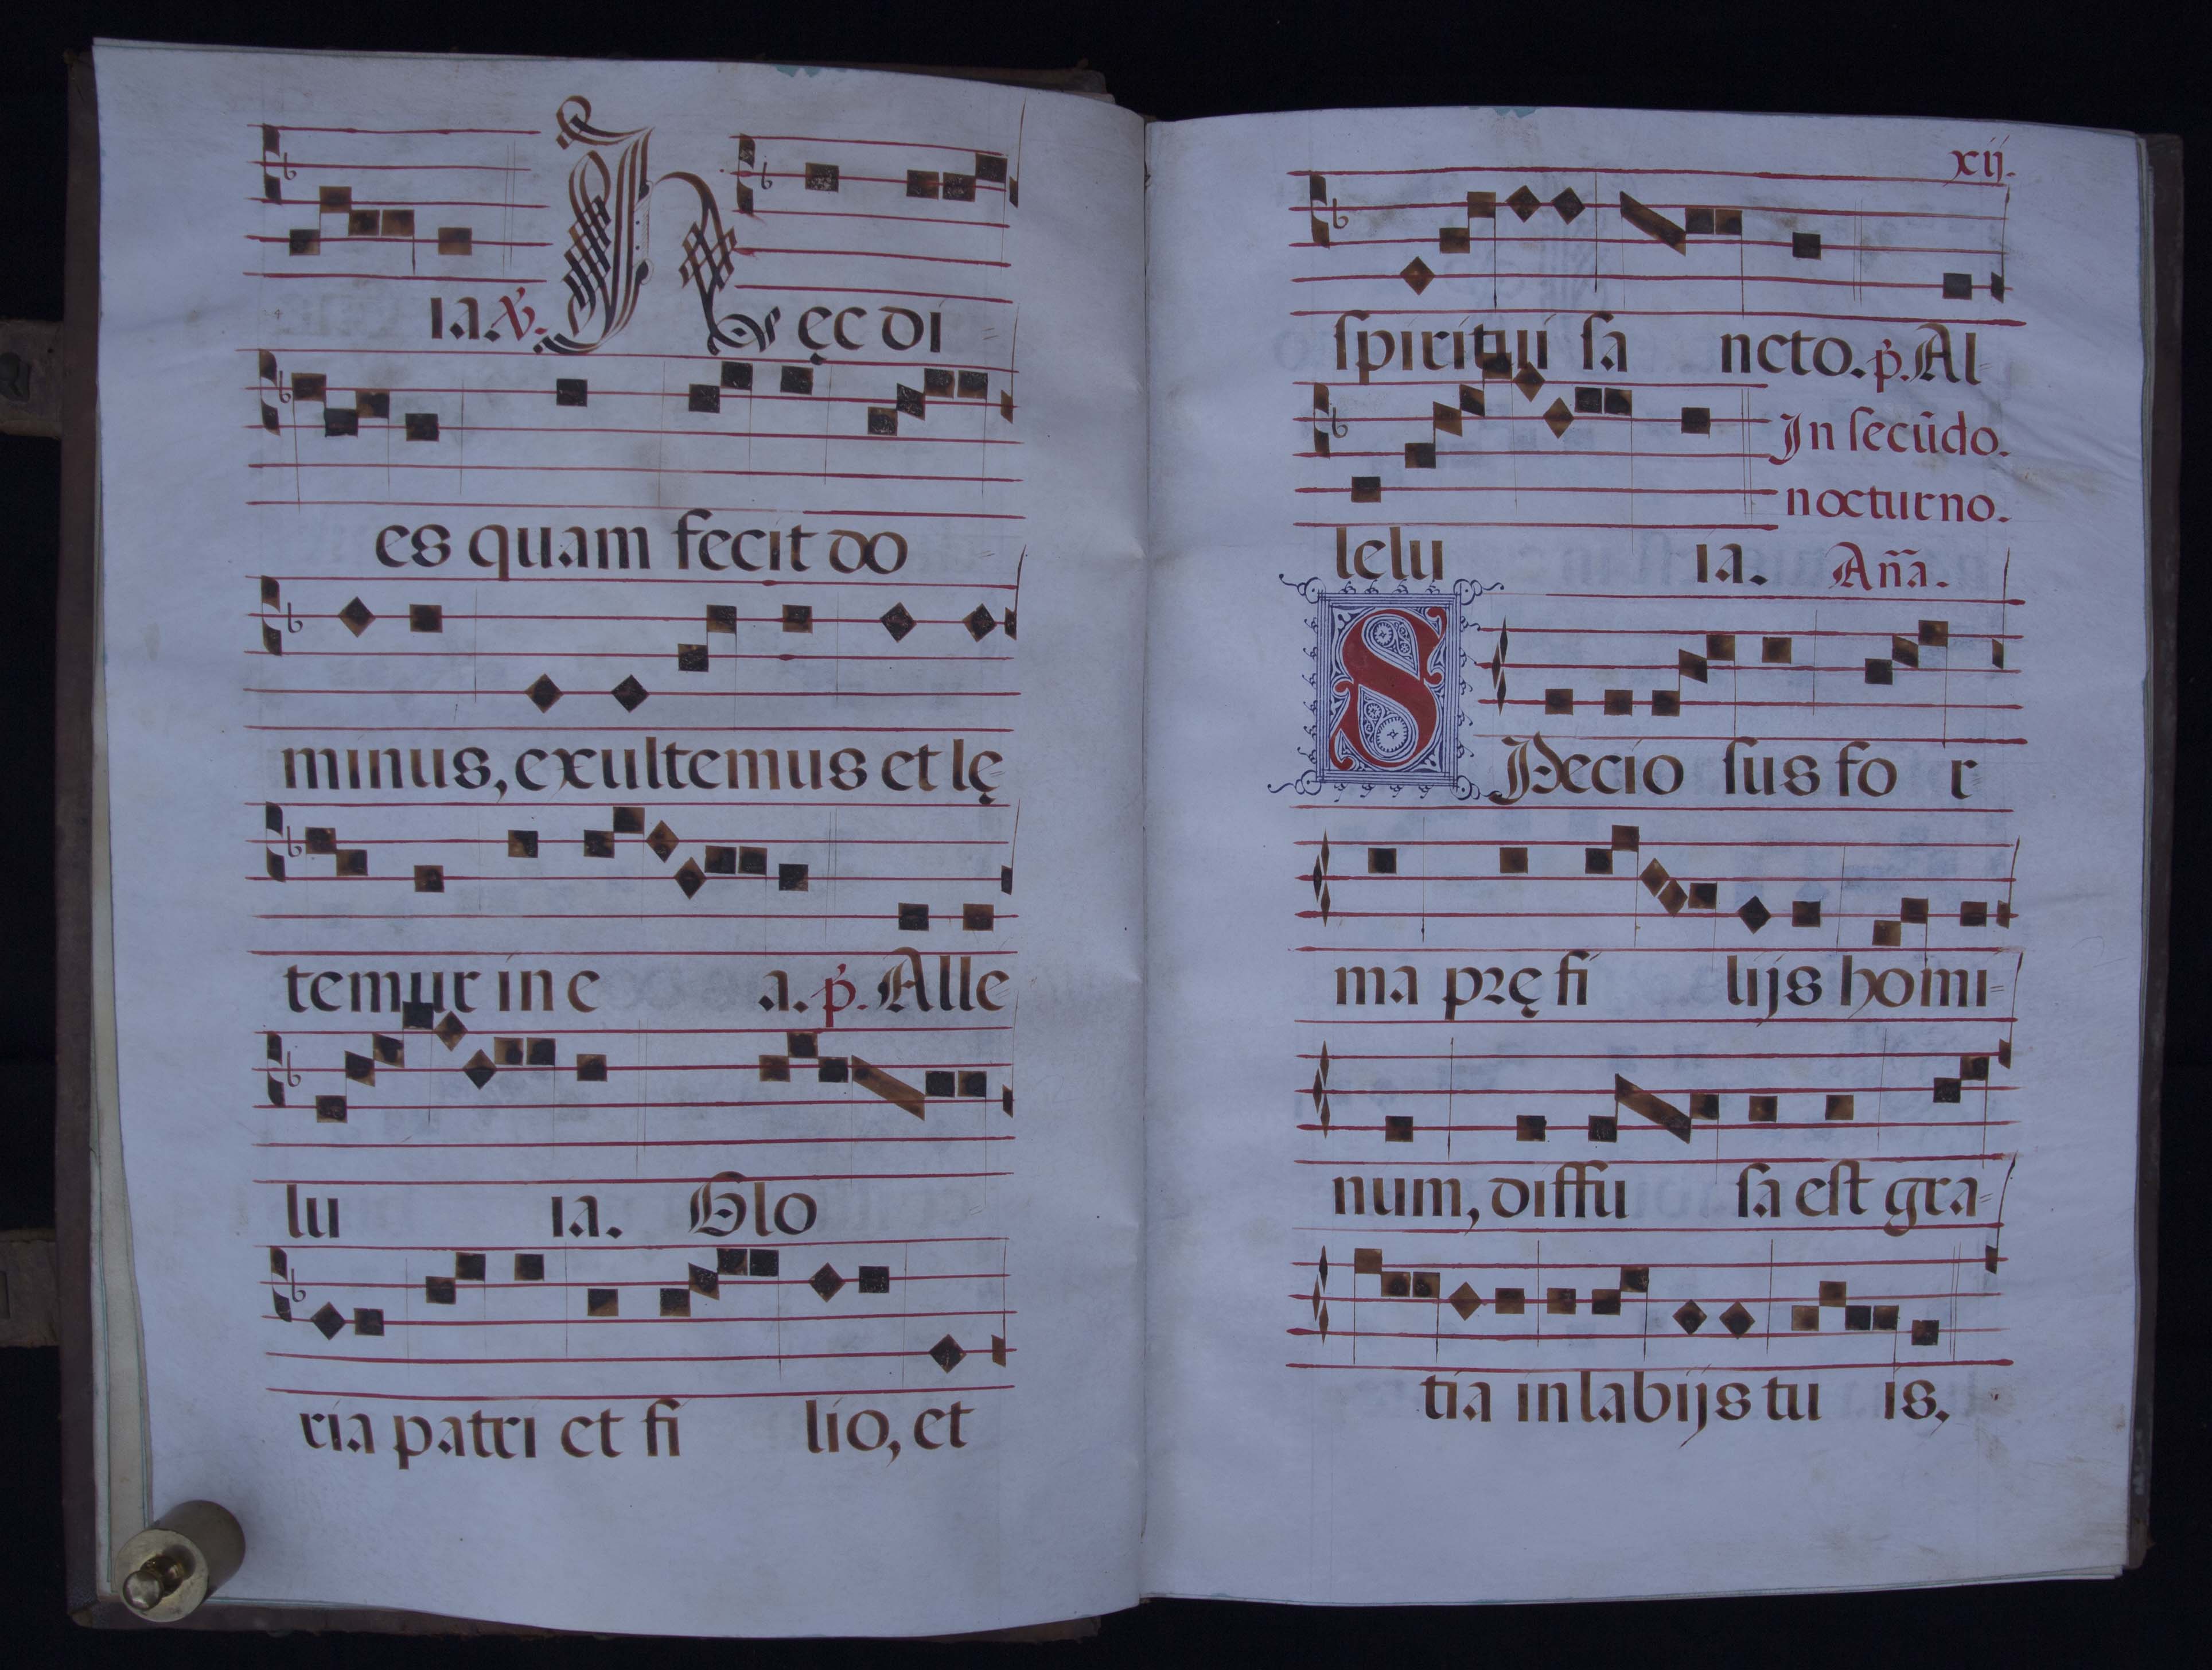 ia. ℣. Hęc di=
es quam fecit do
minus, exultemus et lę
temur in e a. p. Alle
lu ia. Glo
ria patri et fi lio, et
xij.
spiritui sa ncto. p. Al=
In secūdo.
nocturno.
lelu ia. Añã.
SPecio sus fo r
ma prę fi lijs homi=
num, diffu sa est gra=
tia in labijs tu is,